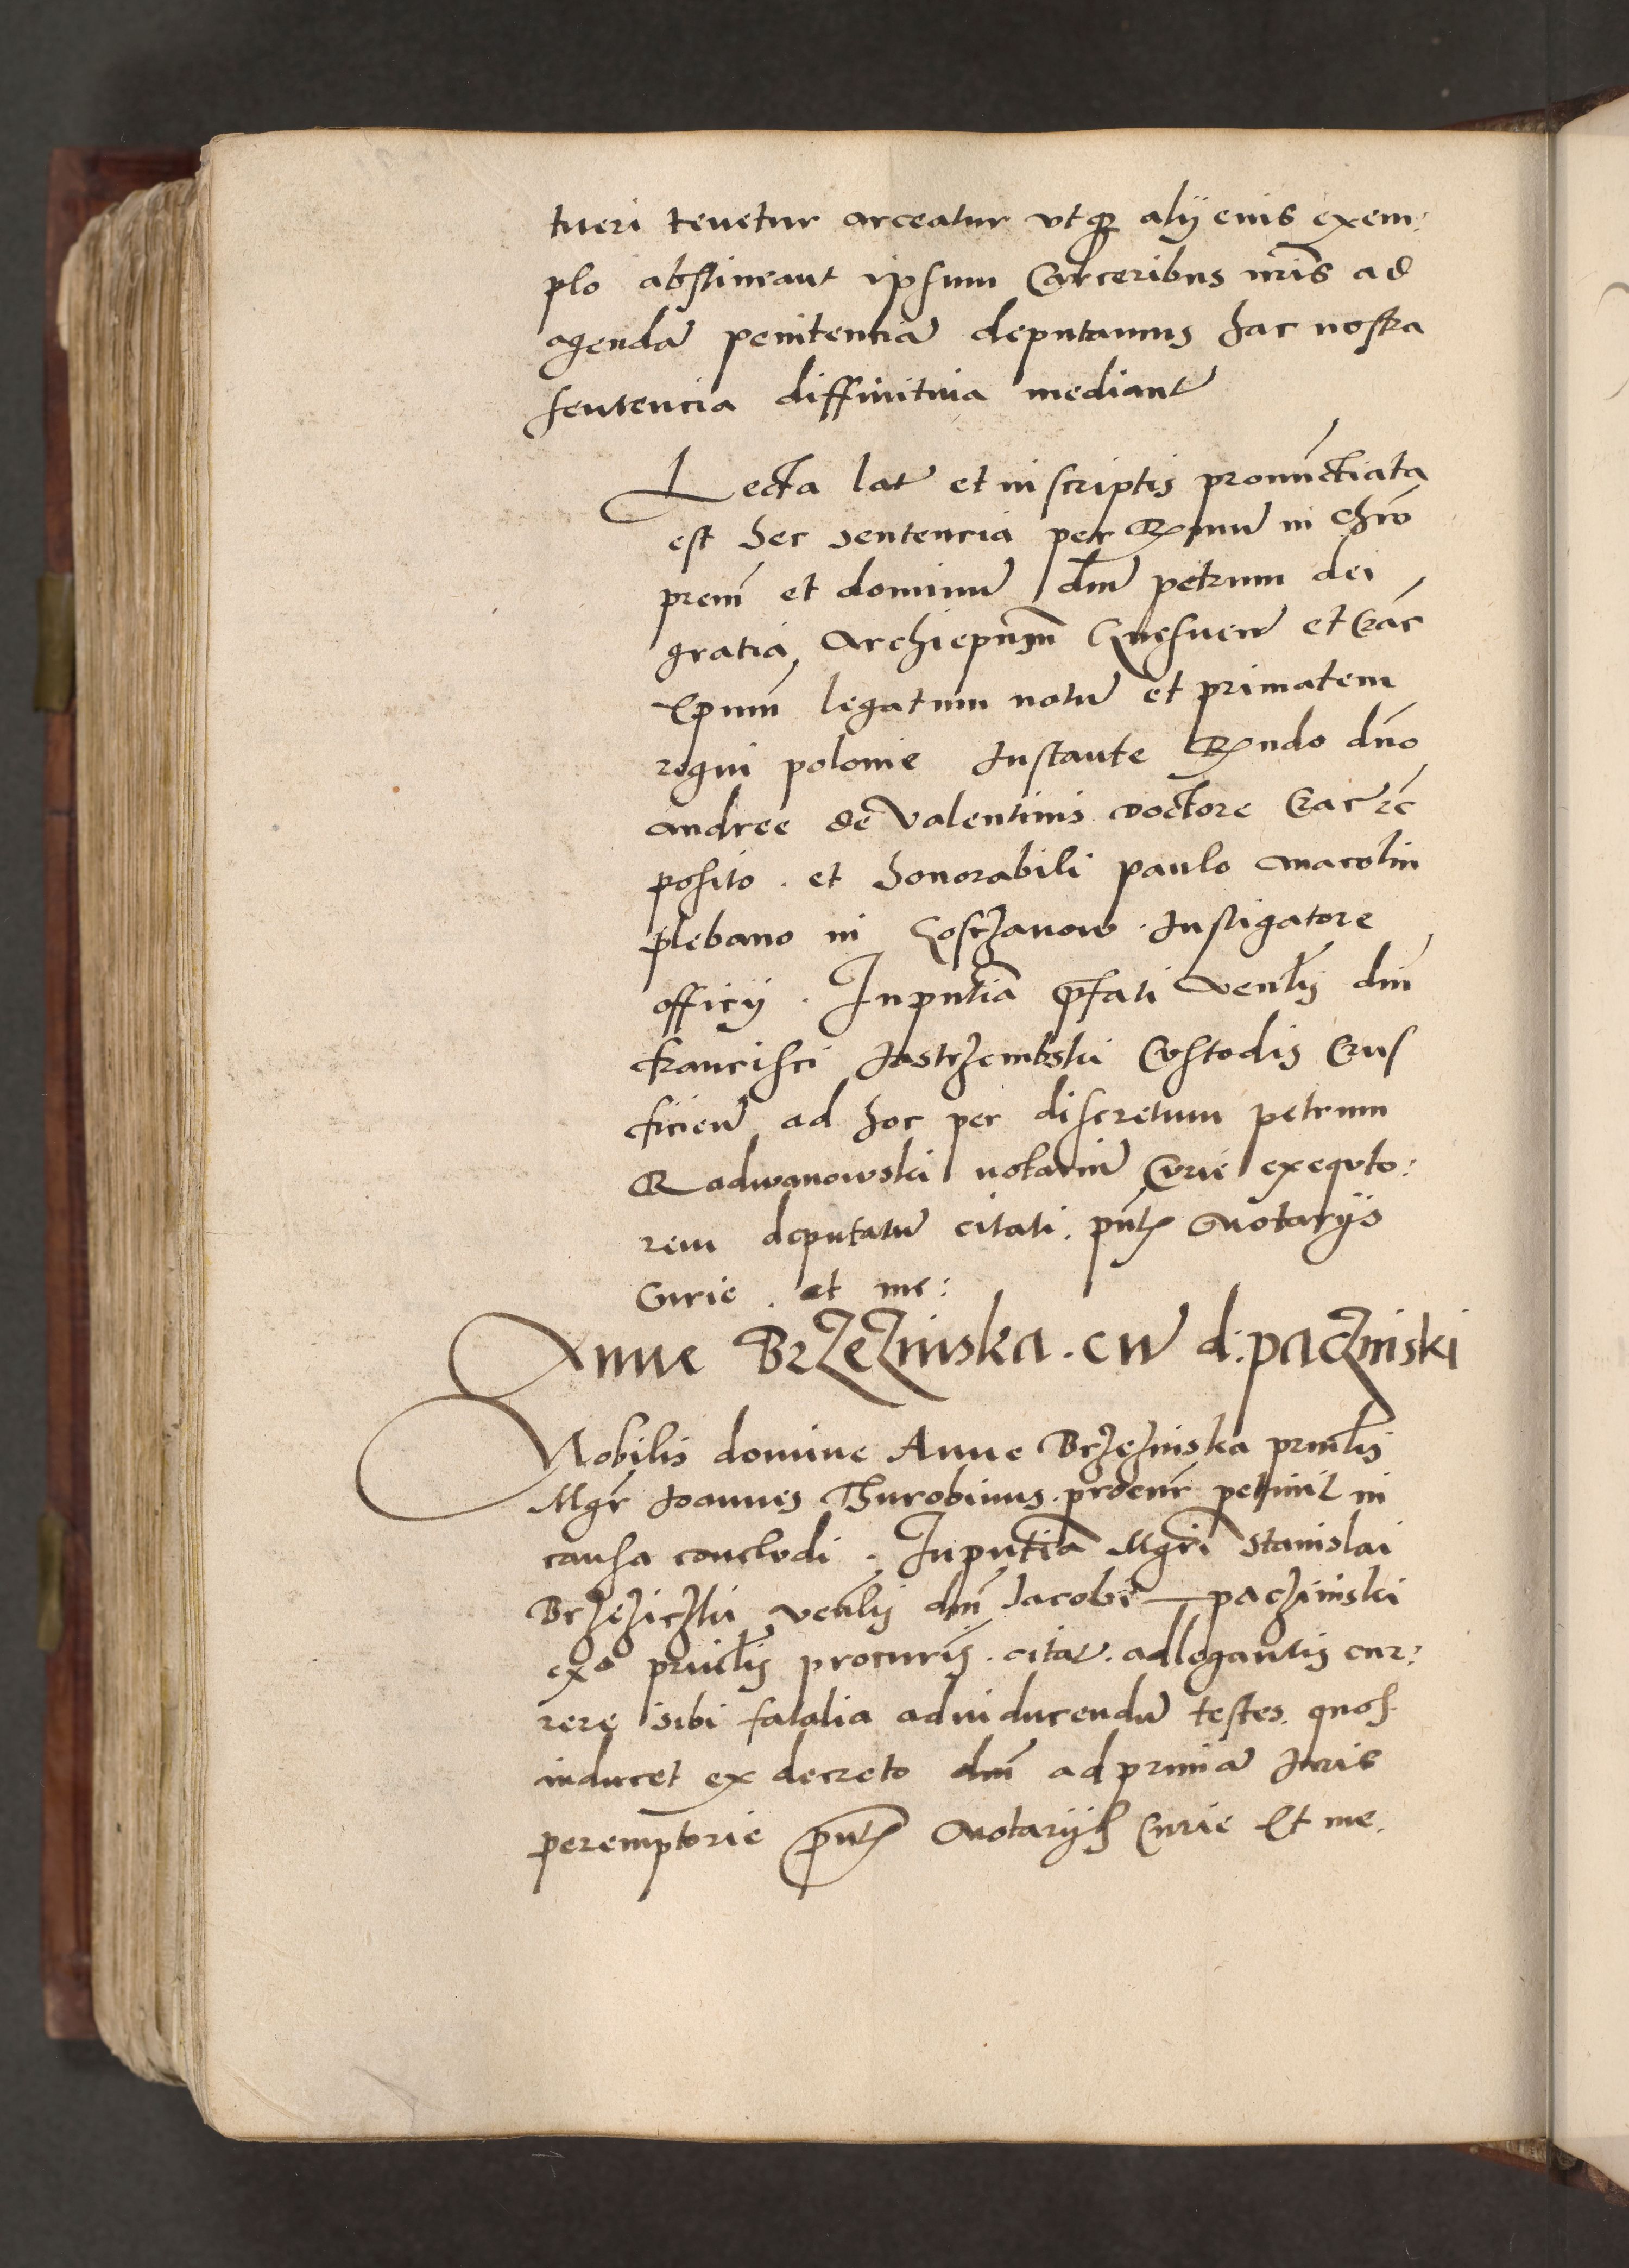 tueri tenetur arceatur utqꝫ alij eius exem:
plo abstineant ipsum Carceribus nr̃is ad
agendã penitenciã deputamus hac nostra
sentencia diffinitiua mediant̃
Lecta lat̃ et in scriptis pronũctiata
est hec sentencia per Rx̃mũ in chr̃o
prem̃ et dominũ dm̃ petrum dei
gratia, Archiepũm Gnesnen̄ et Crac̃
Epum̃ legatum natũ et primatem
regni polonie Instante Rx̃ndo dño
andree de Valentinis doctore Crac̃ ꝓ̃
posito . et honorabili paulo macolin
plebano in Coscʒanow . Instigatore
officij . In pñtia p̃fati venl̃is dm̃
francisci Jastrʒembski Custodis Crus
ficien̄ ad hoc per discretum petrum
Radwanowski notariũ Curie exequto:
rem deputatũ citati . pñtꝫ Notarijs
Curie . et me:
Anne BrʒeʒinSka . cũ d: pacʒinski
Nobilis domine Anne Brʒeʒinska prinl̃is
Mgr̃ Joannes Thurobinus . procur̃ petiuit in
causa concludi . In pñtia Mgr̃i Stanislai
Brʒeʒicʒki venl̃is dm̃ Jacobi — pacʒinski
exº prinl̃is procur̃is . citat̃ . adlegantis cur:
rere sibi fatalia ad inducendũ testes . quos
inducet ex decreto dm̃ ad primã Iuris
peremptorie p̃ntꝫ Notarijs Curie Et me .